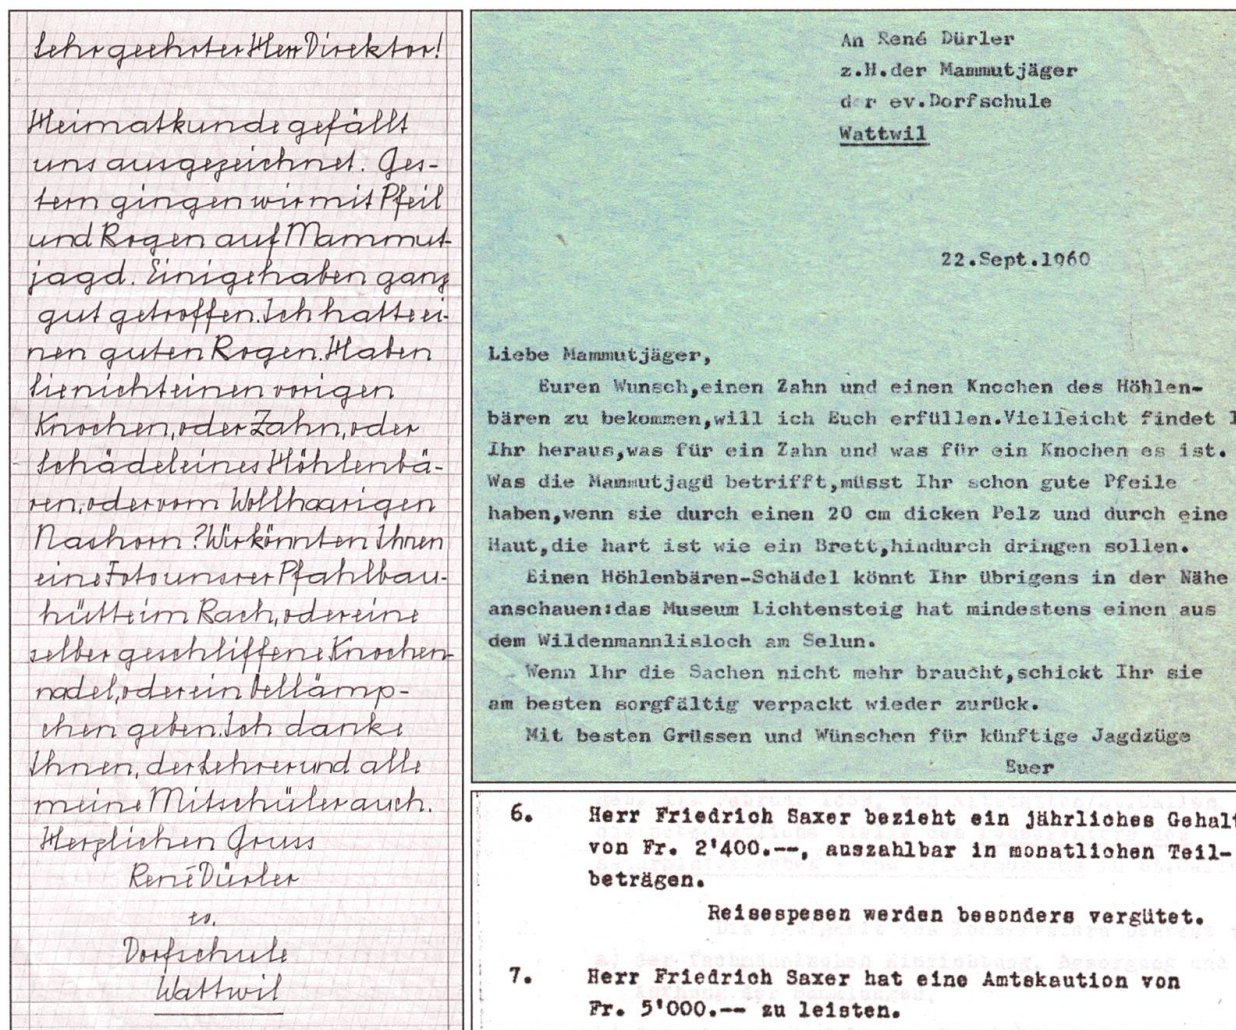 Sehr geehrter Herr Direktor!
Heimatkunde gefällt
uns ausgezeichnet. Ges-
tern gingen wir mit Pfeil
und Bogen auf Mammut-
jagd. Einige haben ganz
gut getroffen. Ich hatte ei-
nen guten Bogen. Haben
Sie nicht einen vorigen
Knochen, oder Zahn, oder
Schädel eines Höhlenbä-
ren, oder vom Wollhaarigen
Nashorn? Wir könnten Ihnen
eine Foto unsrer Pfahlbau-
hütte im Bach, oder eine
selber geschliffene Knochen-
nadel, oder ein Öllämp-
chen geben. Ich danke
Ihnen, der Lehrer und alle
meine Mitschüler auch.
Herzlichen Gruss
René Dürler
ev.
Dorfschule
Wattwil
An René Dürler
z.H.der Mammutjäger
der ev.Dorfschule
Wattwil
22.Sept.1960
Liebe Mammutjäger,
Euren Wunsch,einen Zahn und einen Knochen des Höhlen-
bären zu bekommen,will ich Euch erfüllen.Vielleicht findet
Ihr heraus,was für ein Zahn und was für ein Knochen es ist.
Was die Mammutjagd betrifft,müsst Ihr schon gute Pfeile
haben,wenn sie durch einen 20 cm dicken Pelz und durch eine
Haut,die hart ist wie ein Brett,hindurch dringen sollen.
Einen Höhlenbären-Schädel könnt Ihr übrigens in der Nähe
anschauen:das Museum Lichtensteig hat mindestens einen aus
dem Wildenmannlisloch am Selun.
Wenn Ihr die Sachen nicht mehr braucht,schickt Ihr sie
am besten sorgfältig verpackt wieder zurück.
Mit besten Grüssen und Wünschen für künftige Jagdzüge
Euer
6. Herr Friedrich Saxer bezieht ein jährliches Gehalt
von Fr. 2'400.--, auszahlbar in monatlichen Teil-
beträgen.
Reisespesen werden besonders vergütet.
7. Herr Friedrich Saxer hat eine Amtskaution von
Fr. 5'000.-- zu leisten.